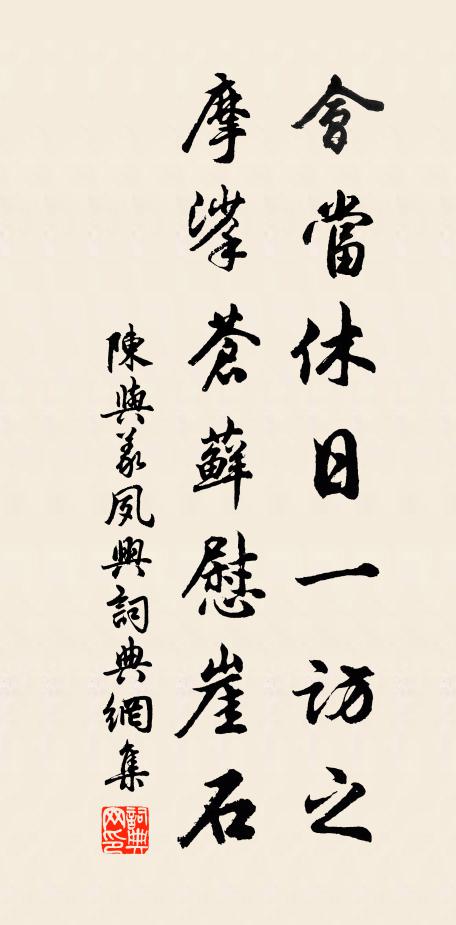 會當休日一訪之
摩挲蒼蘚慰崖石
陳與義夙興詞典網集
詞典网印